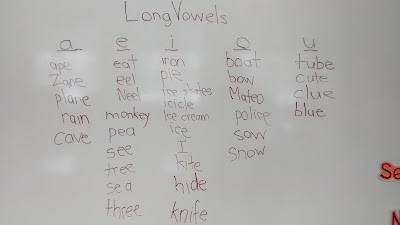 Long Vowels
a
ape
Zane
plane
rain
cave
e
eat
eel
Neel
monkey
pea
see
tree
sea
three
i
iron
pie
Ice skates
icicle
Ice cream
ice
I
kite
hide
knife
o
boat
bow
Mateo
police
sow
snow
u
tube
cute
clue
blue
Se